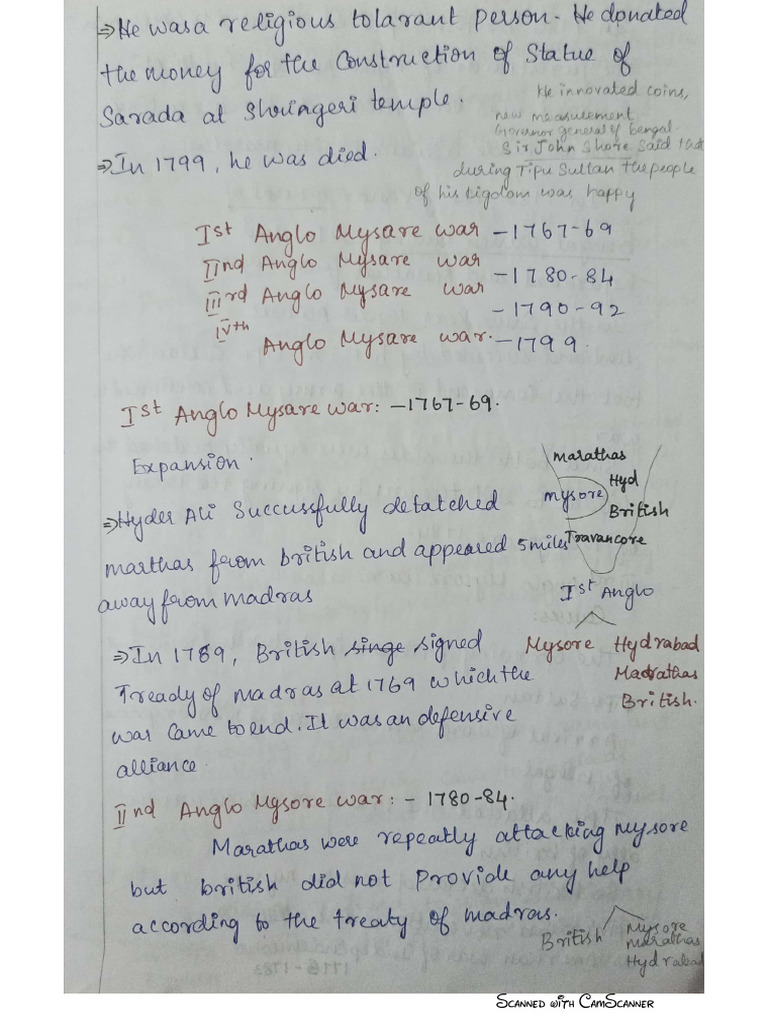 ⇒He was a religious tolarant person. He donated
the money for the Construction of Statue of
Sarada at Shringeri temple.
He innovated coins,
new measurement
Governor general of bengal
Sir John Shore said that
during Tipu Sultan the people
of his kigdom was happy
⇒In 1799, he was died.
Ist Anglo Mysare war -1767-69
IInd Anglo Mysare war
-1780-84
IIIrd Anglo Mysare war
-1790-92
IVth Anglo Mysare war. -1799.
Ist Anglo Mysare war: -1767-69.
Expansion.
⇒Hyder Ali Successfully detatched
marthas from british and appeared 5miles
away from madras
marathas
Hyd
mysore
British
Travancore
Ist Anglo
Mysore Hydrabad
Madrathas
British.
⇒In 1789, British singe signed
Tready of madras at 1769 which the
war came to end. It was an defensive
alliance.
IInd Anglo Mysore war: - 1780-84.
Marathas were repeatly attacking Mysore
but british did not Provide any help
according to the treaty of madras.
British Mysore
Marathas
Hydrabad
1776-1783
Scanned with CamScanner